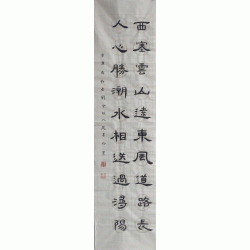 西塞雲山遠東風道路長
人心勝潮水相送過潯陽